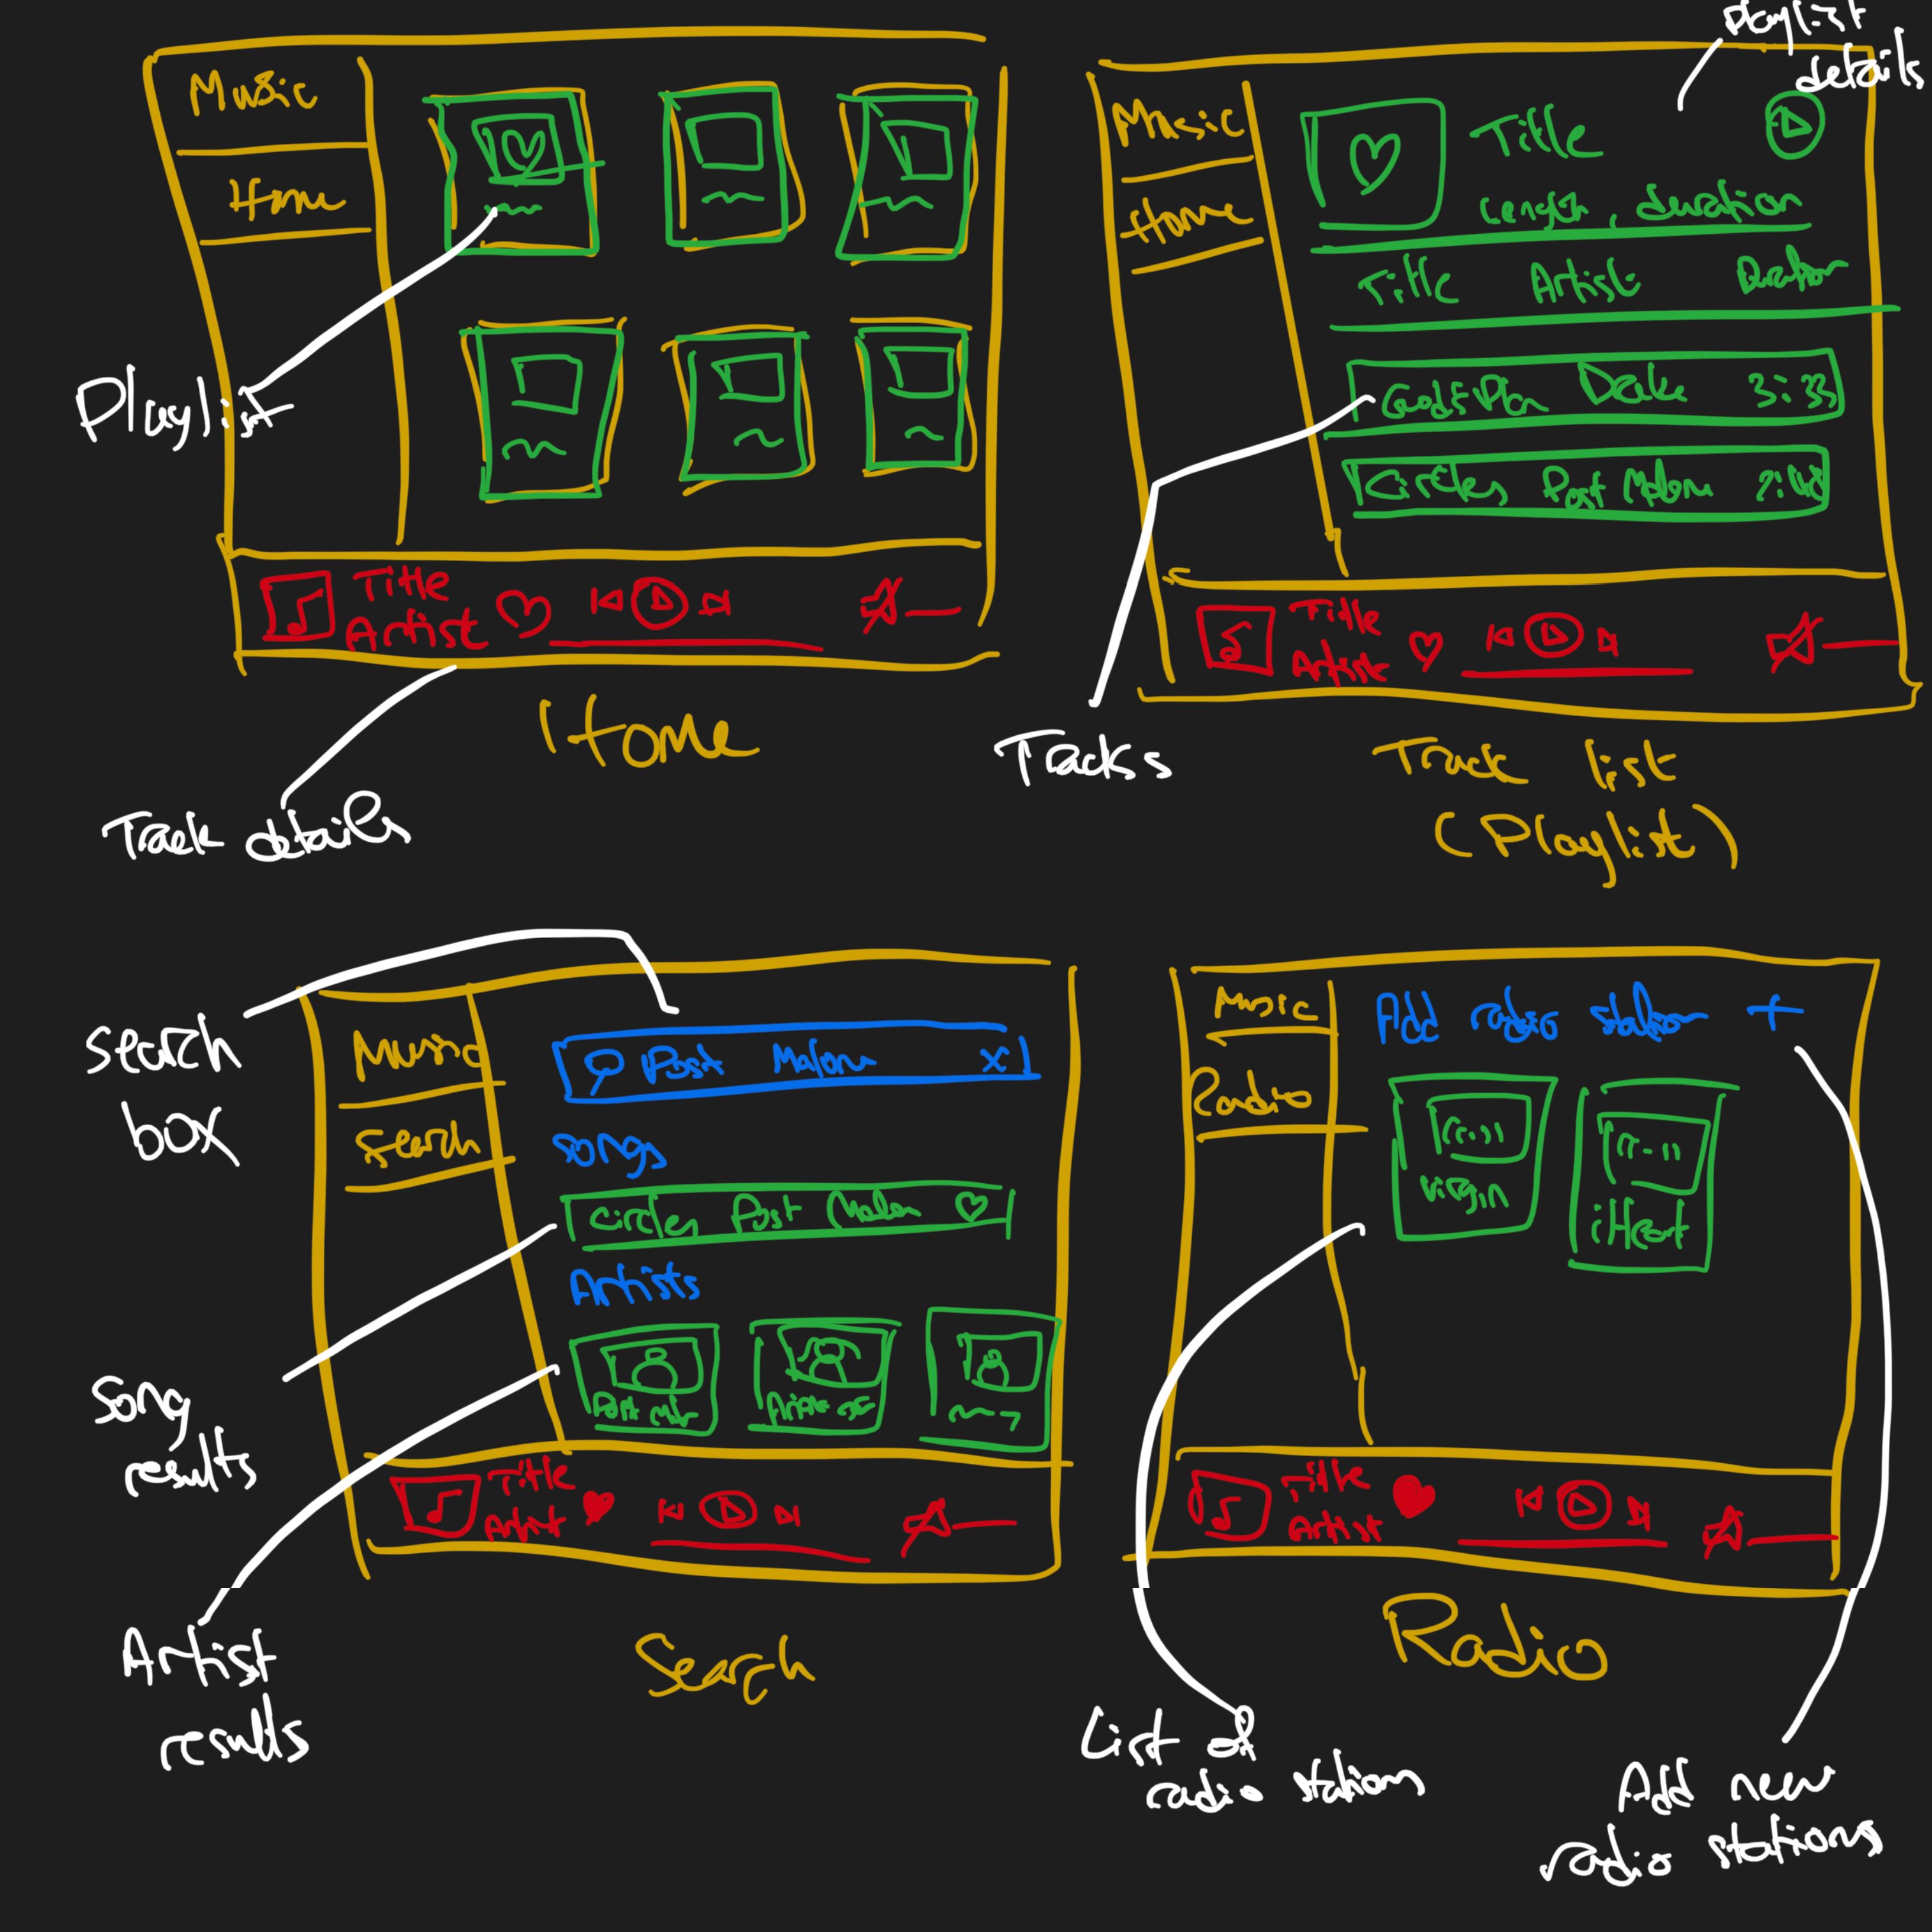 Music
Home
Playlist
Title
Artist
Home
Track details
playlist
details
Music
Home
Title
Length, duration
Title Artist Duration
God's Plan Drake 3:33
Circles Post Malone
Title
Artist
Tracks
Track list
(Playlist)
search
box
Music
Search
Post Malone X
Songs
Circles Post Malone
Artists
Title
Artist
song
results
Artist
results
Search
Music
Radio
Add radio station +
Virgin
iHeart
Title
Artist
Radio
List of
radio stations
Add new
radio stations